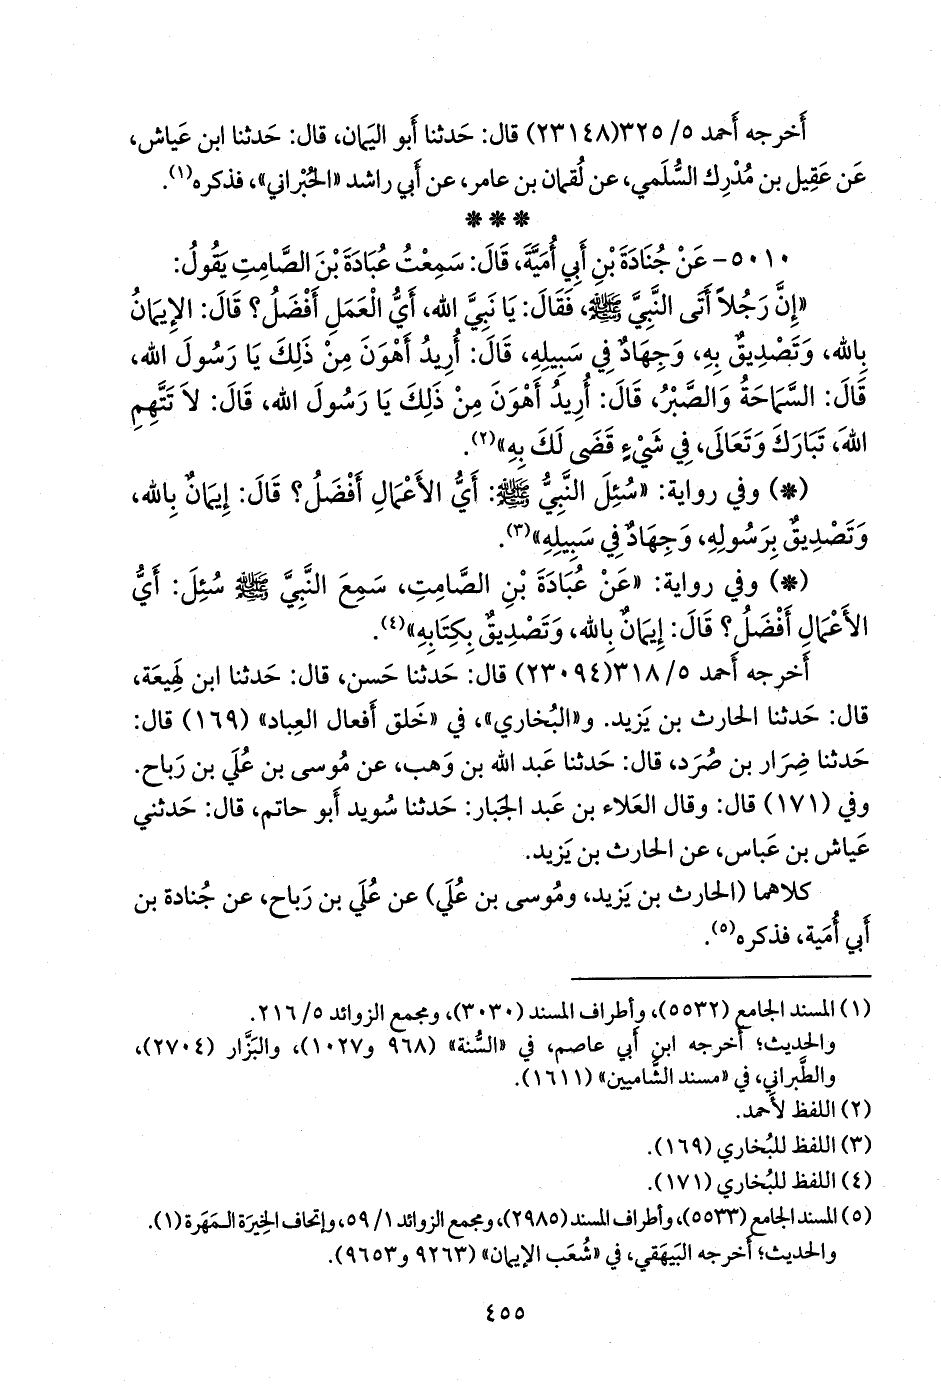 أَخرجه أَحمد ٥/ ٣٢٥(٢٣١٤٨) قال: حَدثنا أَبو اليَمان، قال: حَدثنا ابن عَياش،
عَن عَقِيل بن مُدْرِك السُّلَمي، عن لُقمان بن عامر، عن أَبي راشد «الحُبْراني»، فذكره(١).
* * *
٥٠١٠- عَنْ جُنَادَةَ بْنِ أَبِي أُمَيَّةَ، قَالَ: سَمِعْتُ عُبَادَةَ بْنَ الصَّامِتِ يَقُولُ:
«إِنَّ رَجُلاً أَتَى النَّبِيَّ ﷺ، فَقَالَ: يَا نَبِيَّ الله، أَيُّ الْعَمَلِ أَفْضَلُ؟ قَالَ: الإِيمَانُ
بِالله، وَتَصْدِيقٌ بِهِ، وَجِهَادٌ فِي سَبِيلِهِ، قَالَ: أُرِيدُ أَهْوَنَ مِنْ ذَلِكَ يَا رَسُولَ الله،
قَالَ: السَّمَاحَةُ وَالصَّبْرُ، قَالَ: أُرِيدُ أَهْوَنَ مِنْ ذَلِكَ يَا رَسُولَ الله، قَالَ: لاَ تَتَّهِمِ
اللهَ، تَبَارَكَ وَتَعَالَى، فِي شَيْءٍ قَضَى لَكَ بِهِ»(٢).
(*) وفي رواية: «سُئِلَ النَّبِيُّ ﷺ: أَيُّ الأَعْمَالِ أَفْضَلُ؟ قَالَ: إِيمَانٌ بِالله،
وَتَصْدِيقٌ بِرَسُولِهِ، وَجِهَادٌ فِي سَبِيلِهِ»(٣).
(*) وفي رواية: «عَنْ عُبَادَةَ بْنِ الصَّامِتِ، سَمِعَ النَّبِيَّ ﷺ سُئِلَ: أَيُّ
الأَعْمَالِ أَفْضَلُ؟ قَالَ: إِيمَانٌ بِالله، وَتَصْدِيقٌ بِكِتَابِهِ»(٤).
أَخرجه أَحمد ٥/ ٣١٨(٢٣٠٩٤) قال: حَدثنا حَسن، قال: حَدثنا ابن لَهِيعَة،
قال: حَدثنا الحارث بن يَزيد. و«البُخاري»، في «خَلق أَفعال العِباد» (١٦٩) قال:
حَدثنا ضِرَار بن صُرَد، قال: حَدثنا عَبد الله بن وَهب، عن مُوسى بن عُلَي بن رَباح.
وفي (١٧١) قال: وقال العَلاء بن عَبد الجَبار: حَدثنا سُويد أَبو حاتم، قال: حَدثني
عَياش بن عَباس، عن الحارث بن يَزيد.
كلاهما (الحارث بن يَزيد، ومُوسى بن عُلَي) عن عُلَي بن رَباح، عن جُنادة بن
أَبي أُمَية، فذكره(٥).
(١) المسند الجامع (٥٥٣٢)، وأطراف المسند (٣٠٣٠)، ومجمع الزوائد ٥/ ٢١٦.
والحديث؛ أَخرجه ابن أَبي عاصم، في «السُّنة» (٩٦٨ و١٠٢٧)، والبَزَّار (٢٧٠٤)،
والطَّبراني، في «مسند الشَّاميين» (١٦١١).
(٢) اللفظ لأحمد.
(٣) اللفظ للبُخاري (١٦٩).
(٤) اللفظ للبُخاري (١٧١).
(٥) المسند الجامع (٥٥٣٣)، وأطراف المسند (٢٩٨٥)، ومجمع الزوائد ١/ ٥٩، وإتحاف الخِيرَة الـمَهَرة (١).
والحديث؛ أَخرجه البَيهَقي، في «شُعَب الإيمان» (٩٢٦٣ و٩٦٥٣).
٤٥٥